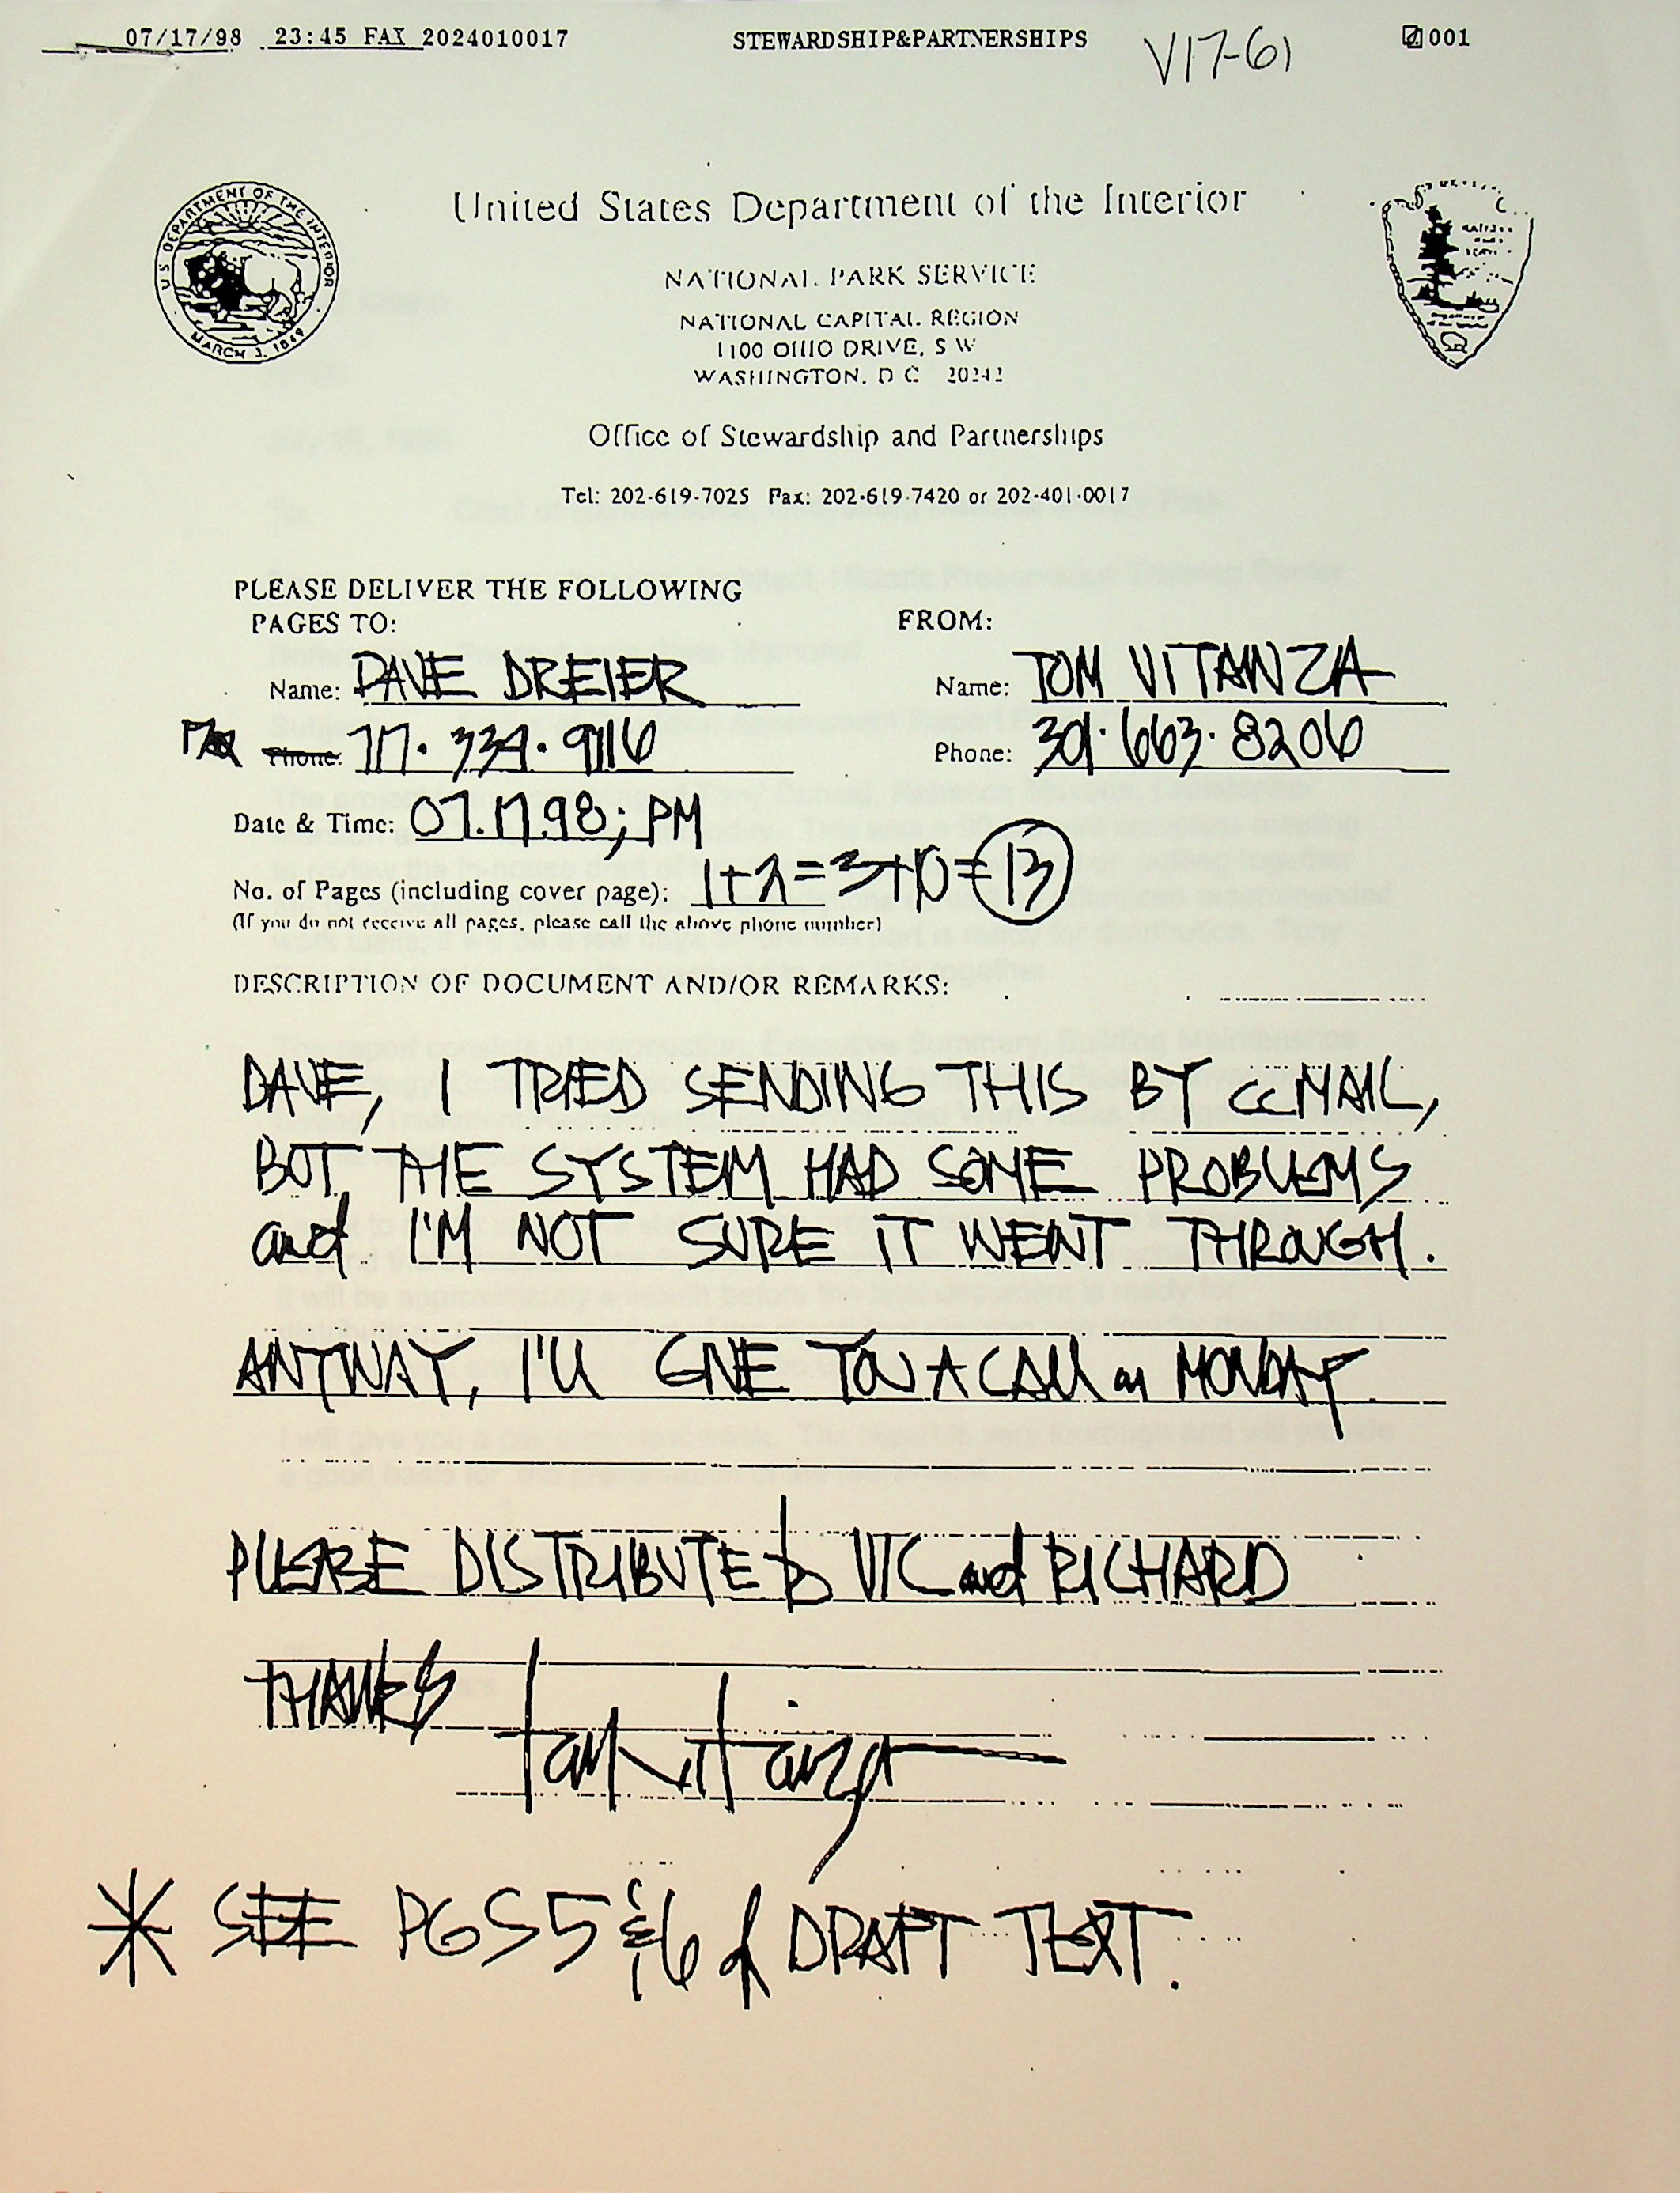 07/17/98 23:45 FAX 2024010017 STEWARDSHIP&PARTNERSHIPS 001
V17-61
U.S. DEPARTMENT OF THE INTERIOR
MARCH 3, 1849
United States Department of the Interior
NATIONAL PARK SERVICE
NATIONAL CAPITAL REGION
1100 OHIO DRIVE, S W
WASHINGTON, D C 20242
Office of Stewardship and Partnerships
Tel: 202-619-7025 Fax: 202-619-7420 or 202-401-0017
PLEASE DELIVER THE FOLLOWING
PAGES TO: FROM:
Name: DAVE DREIER Name: TOM VITANZA
Fax Phone: 717.334.9116 Phone: 301.663.8206
Date & Time: 07.17.98; PM
No. of Pages (including cover page): 1+2=3+10=13
(If you do not receive all pages, please call the above phone number)
DESCRIPTION OF DOCUMENT AND/OR REMARKS:
DAVE, I TRIED SENDING THIS BY ccMAIL,
BUT THE SYSTEM HAD SOME PROBLEMS
and I'M NOT SURE IT WENT THROUGH.
ANYWAY, I'll GIVE YOU A CALL on MONDAY.
PLEASE DISTRIBUTE to VIC and RICHARD
THANKS
Tom Vitanza
* SEE PGS 5 & 6 of DRAFT TEXT.